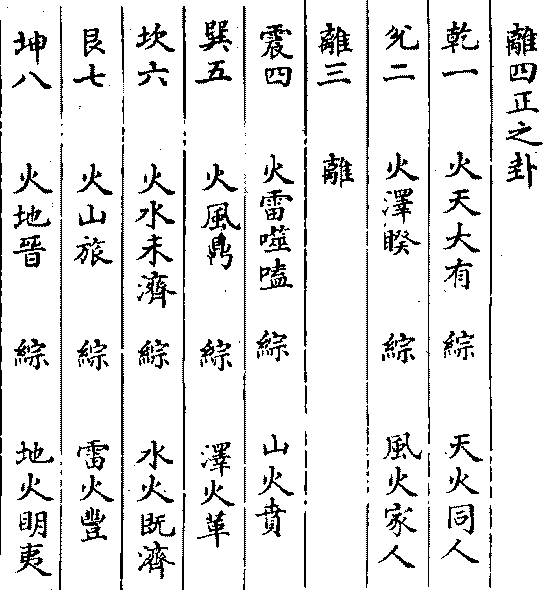 離四正之卦
乾一 火天大有 綜 天火同人
兊二 火澤睽 綜 風火家人
離三 離
震四 火雷噬嗑 綜 山火賁
巽五 火風鼎 綜 澤火革
坎六 火水未濟 綜 水火既濟
艮七 火山旅 綜 雷火豐
坤八 火地晉 綜 地火明夷